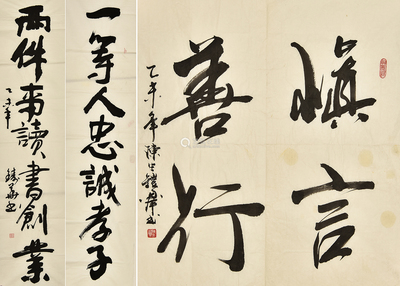 一等人忠誠孝子
兩件事讀書創業
乙未年
慎言
善行
乙未年陳